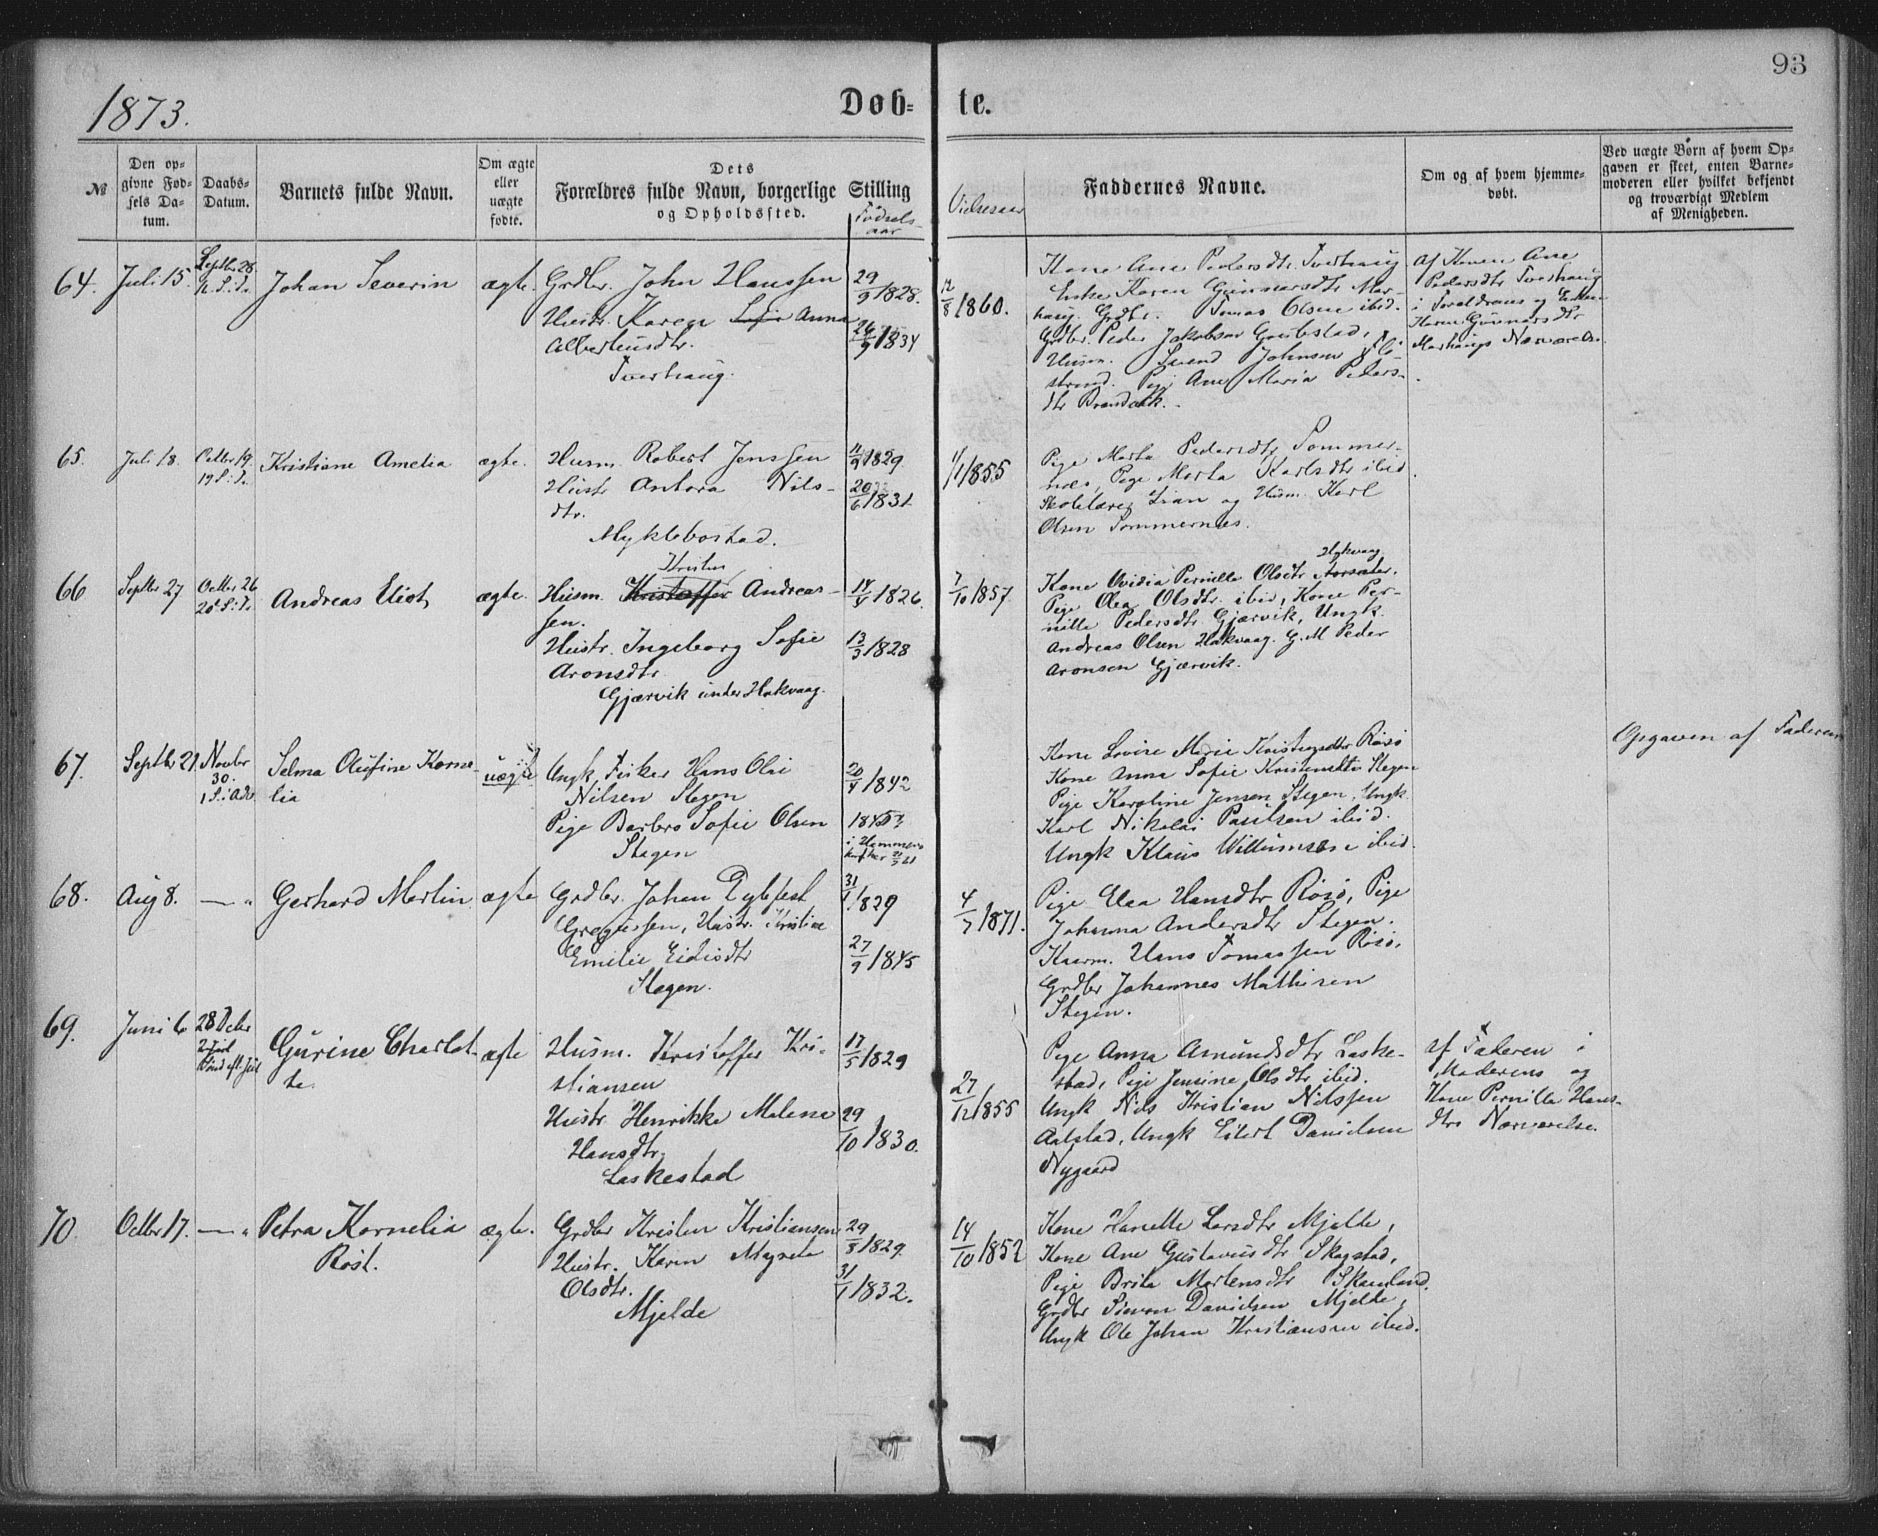 93
1873.
Døb=
te.
№
Den op=
givne Fød=
sels Da=
tum.
Daabs=
Datum.
Barnets fulde Navn.
Om ægte
eller
uægte
fødte.
Dets
Forældres fulde Navn, borgerlige Stilling
og Opholdssted.
Fødsels-
aar
Vielsesaar
Faddernes Navne.
Om og af hvem hjemme=
døbt.
Ved uægte Børn af hvem Op=
gaven er skeet, enten Barne=
moderen eller hvilket bekjendt
og troværdigt Medlem
af Menigheden.
64.
Juli 15.
Septbr 28.
Johan Severin
ægte.
Grdbr. John Hanssen
Hustr. Karen Sofie Anna
Albertusdtr.
Tverhaug.
29/9 1828.
26/9 1834
12/8 1860.
Kone Ane Pedersdtr. Tverhaug
Enke Karen Gunnarsdtr Mar-
haug. Grdbr. Tomas Olsen ibid.
Grdbr. Peder Jakobsen
Husm. Svend Johnsen
strand. Pige Ane Maria Peders-
dtr
af Konen Ane
Pedersdtr Tverhaug
i Foreldrenes og Enken
Karen Gunnarsdtr
Marhaugs Nærværelse.
65.
Juli 18.
Octbr 19.
19 S. i Tr.
Kristiane Amelia
ægte.
Husm. Robert Jenssen
Hustr Antora Nils-
dtr.
Myklebostad.
1829
20/6 1831
1855
Pige Marta Pedersdtr Sommer-
nes, Pige Marta Karlsdtr ibid
Skolelærer Lian og Husm. Karl
Olsen Sommernes.
66
Septbr 27
Octbr 26
20 S. i Tr.
Andreas Eliot
ægte.
Kristen
Husm. Kristoffer Andreas-
sen.
Hustr. Ingeborg Sofie
Aronsdtr.
Gjærvik under Hakvaag.
1826.
13/3 1828
7/10 1857.
Hakvaag
Kone Ovidia Pernille Olsdtr
Pige Olea Olsdtr. ibid, Kone Per-
nille Pedersdtr Gjærvik, Ungk.
Andreas Olsen Hakvaag. G.M. Peder
Aronsen Gjærvik.
67.
Septbr 21.
Novbr
30.
1 S. i Adv.
Selma Olufine Korne-
lia
uægte
Ungk. Fisker Hans Olai
Nilsen Stegen
Pige Barbro Sofie Olsen
Stegen
20/4 1842
1845
Kone Lovise Marie Kristensdtr Røsø
Kone Anna Sofie Kristensdtr Stegen
Pige Karoline Jensen Stegen, Ungk.
Karl Nikolai Paulsen ibid.
Ungk Klaus Willumsen ibid.
Opgaven af Faderen
68.
Aug 8.
— "
Gerhard Martin
ægte
Grdbr. Johan Dybfest
Gregusen, Hustr. Kristine
Emelie Eidisdtr
Stegen.
31/1 1829
27/9 1845
4/7 1871.
Pige Elea Hansdtr Røsø, Pige
Johanna Andersdtr Stegen.
Kaarm. Hans Tomassen Røsø.
Grdbr Johannes Mathisen
Stegen.
69.
Juni 6
28 Decbr
Gurine Charlot-
te.
ægte
Husm. Kristoffer Kri-
stiansen
Hustr. Henrikke Malena
Hansdtr.
Laskestad
17/5 1829
29/10 1830.
27/12 1855
Pige Anna Amundsdtr Laske-
stad, Pige Jensine Olsdtr ibid.
Ungk Nils Kristian Nilssen
Aalstad, Ungk Eilert Danielsen
Nygaard
af Faderen i
Moderens og
Kone Pernille Hans-
dtrs Nærværelse.
70.
Octbr 17.
— "
Petra Kornelia
Røst.
ægte.
Grdbr Kristen Kristiansen
Hustr. Karen Margreta
Olsdtr.
Mjelde
29/8 1829.
31/1 1832.
14/10 1852
Kone Hanette Larsdtr Mjelde,
Kone Ane Gustavusdtr Skagstad,
Pige Brita Mortensdtr Skamland.
Grdbr Simon Danielsen Mjelde,
Ungk Ole Johan Kristiansen ibid.